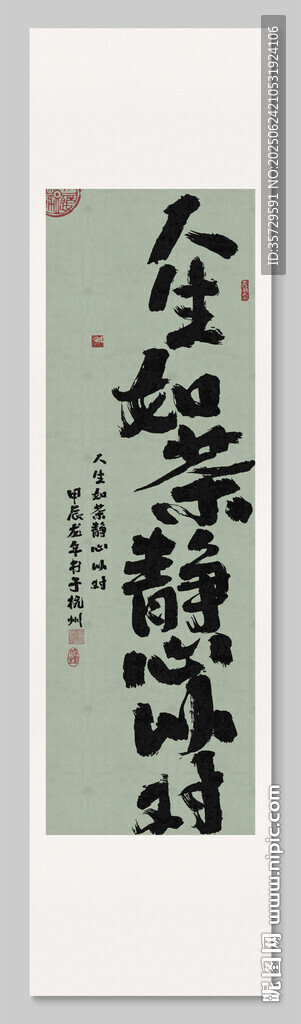 人生如茶静心以对
人生如茶静心以对
甲辰龙年书于杭州
ID:35729591 NO:20250624210531924106
昵图网 www.nipic.com